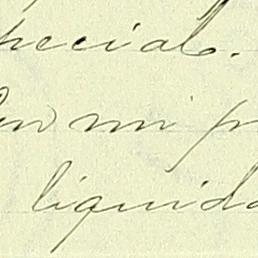 pecial.
En mi p
liquida